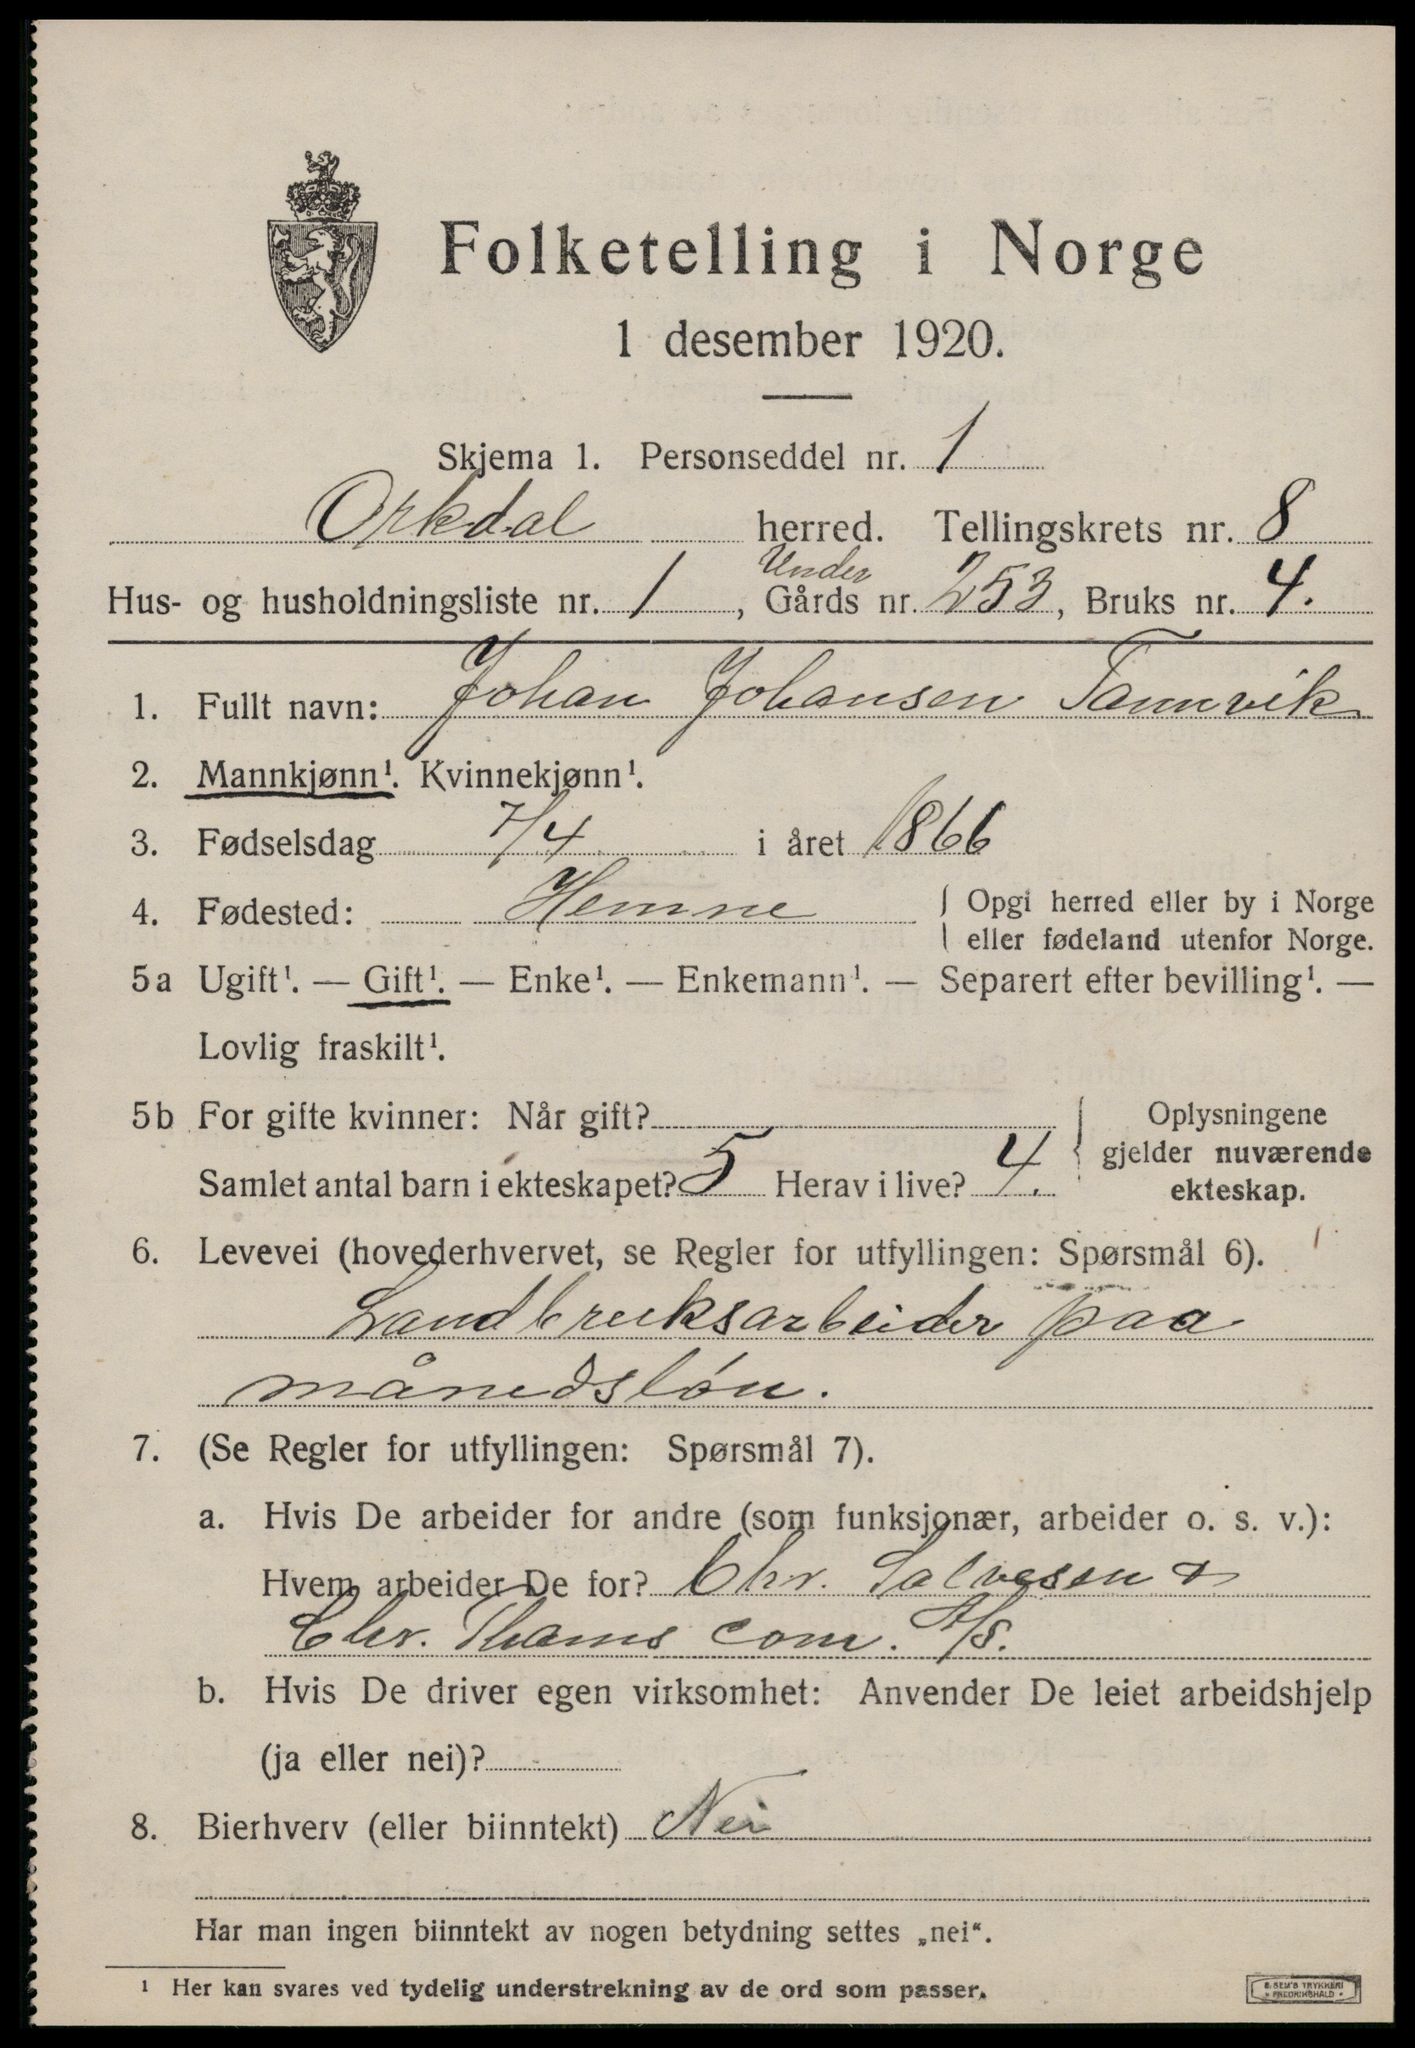 Folketelling i Norge
1 desember 1920.
Skjema 1. Personseddel nr. 1
Orkdal herred. Tellingskrets nr. 8
Under
Hus- og husholdningsliste nr. 1, Gårds nr. 253, Bruks nr. 4.
1. Fullt navn: Johan Johansen Tannvik
2. Mannkjønn¹. Kvinnekjønn¹.
3. Fødselsdag 7/4 i året 1866
4. Fødested: Hemne { Opgi herred eller by i Norge
eller fødeland utenfor Norge.
5a Ugift¹. — Gift¹. — Enke¹. — Enkemann¹. — Separert efter bevilling¹. —
Lovlig fraskilt¹.
5b For gifte kvinner: Når gift? { Oplysningene
gjelder nuværende
Samlet antal barn i ekteskapet? 5 Herav i live? 4. ekteskap.
6. Levevei (hovederhvervet, se Regler for utfyllingen: Spørsmål 6).
Landbruksarbeider paa
månedsløn.
7. (Se Regler for utfyllingen: Spørsmål 7).
a. Hvis De arbeider for andre (som funksjonær, arbeider o. s. v.):
Hvem arbeider De for? Chr. Salvesen &
Chr. Thams com. A/S.
b. Hvis De driver egen virksomhet: Anvender De leiet arbeidshjelp
(ja eller nei)?
8. Bierhverv (eller biinntekt) Nei
Har man ingen biinntekt av nogen betydning settes „nei“.
¹ Her kan svares ved tydelig understrekning av de ord som passer.
E. SEM'S TRYKKERI
FREDRIKSHALD